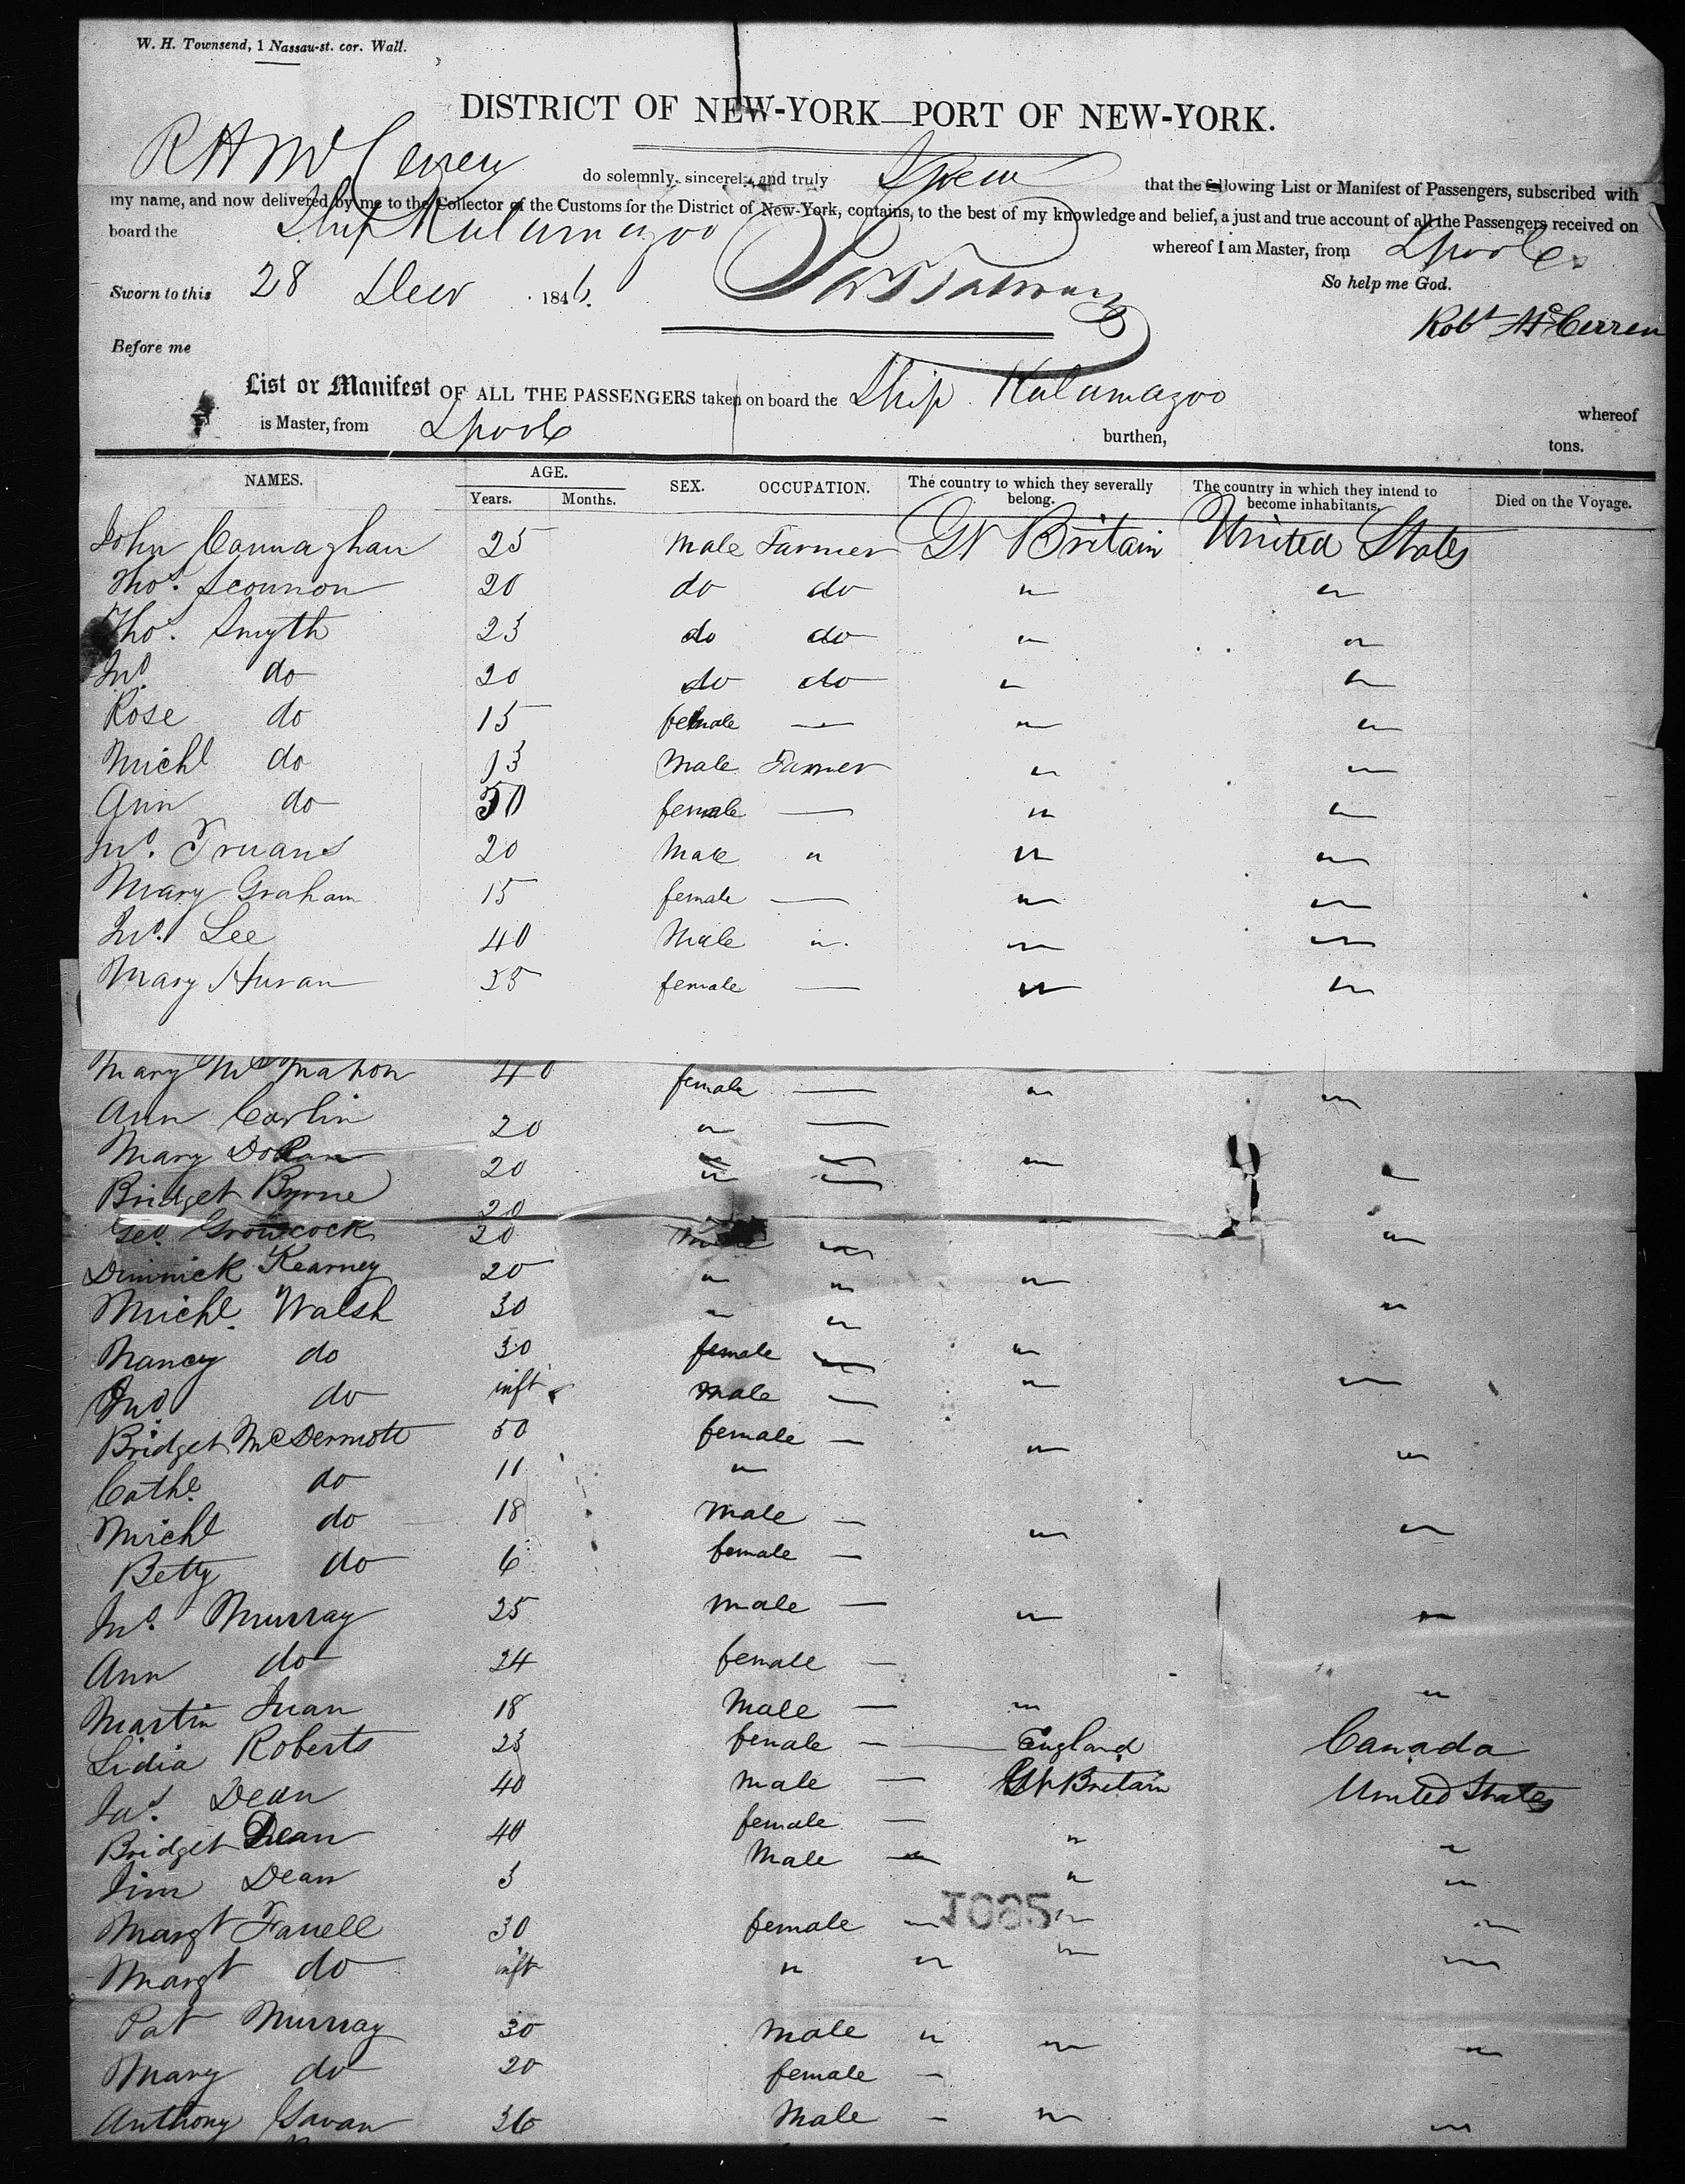 W. H. Townsend, 1 Nassau-st. cor. Wall.
DISTRICT OF NEW-YORK—PORT OF NEW-YORK.
R H McCerren do solemnly, sincerely, and truly Swear that the following List or Manifest of Passengers, subscribed with
my name, and now delivered by me to the Collector of the Customs for the District of New-York, contains, to the best of my knowledge and belief, a just and true account of all the Passengers received on
board the Ship Kalamazoo whereof I am Master, from Lpool
So help me God.
Sworn to this 28 Decr 1846.
Robt McCerren
Before me
List or Manifest OF ALL THE PASSENGERS taken on board the Ship Kalamazoo whereof
is Master, from Lpool burthen, tons.
NAMES. AGE. SEX. OCCUPATION. The country to which they severally belong. The country in which they intend to become inhabitants. Died on the Voyage.
Years. Months.
John Connaghan 25 Male Farmer Gt Britain United States
Thos. Scounon 20 do do " "
Thos. Smyth 23 do do " "
Jno. do 20 do do " "
Rose do 15 female — " "
Michl do 13 Male Farmer " "
Ann do 50 female — " "
Jno. Truans 20 Male " " "
Mary Graham 15 female — " "
Jno. Lee 40 Male " " "
Mary Huran 35 female — " "
Mary McMahon 40 female — " "
Ann Carlin 20 " —
Mary Dolan 20 " — " "
Bridget Byrne 20 " —
Geo. Growcock 20 Male " " "
Dinnick Kearney 20 " " "
Michl. Walsh 30 " " "
Nancy do 30 female — "
Jno. do inft male — " "
Bridget McDermott 50 female — " "
Cathe. do 11 "
Michl do 18 Male — " "
Betty do 6 female —
Jno. Murray 25 male — " "
Ann do 24 female — "
Martin Juan 18 Male — "
Lidia Roberts 23 female — England Canada
Jas. Dean 40 Male — Gt Britain United States
Bridget Dean 40 female — " "
Jim Dean 3 Male — " "
Margt Farrell 30 female — " "
Margt do inft " " " "
Pat Murray 30 Male " " "
Mary do 20 female —
Anthony Gavan 36 Male — " "